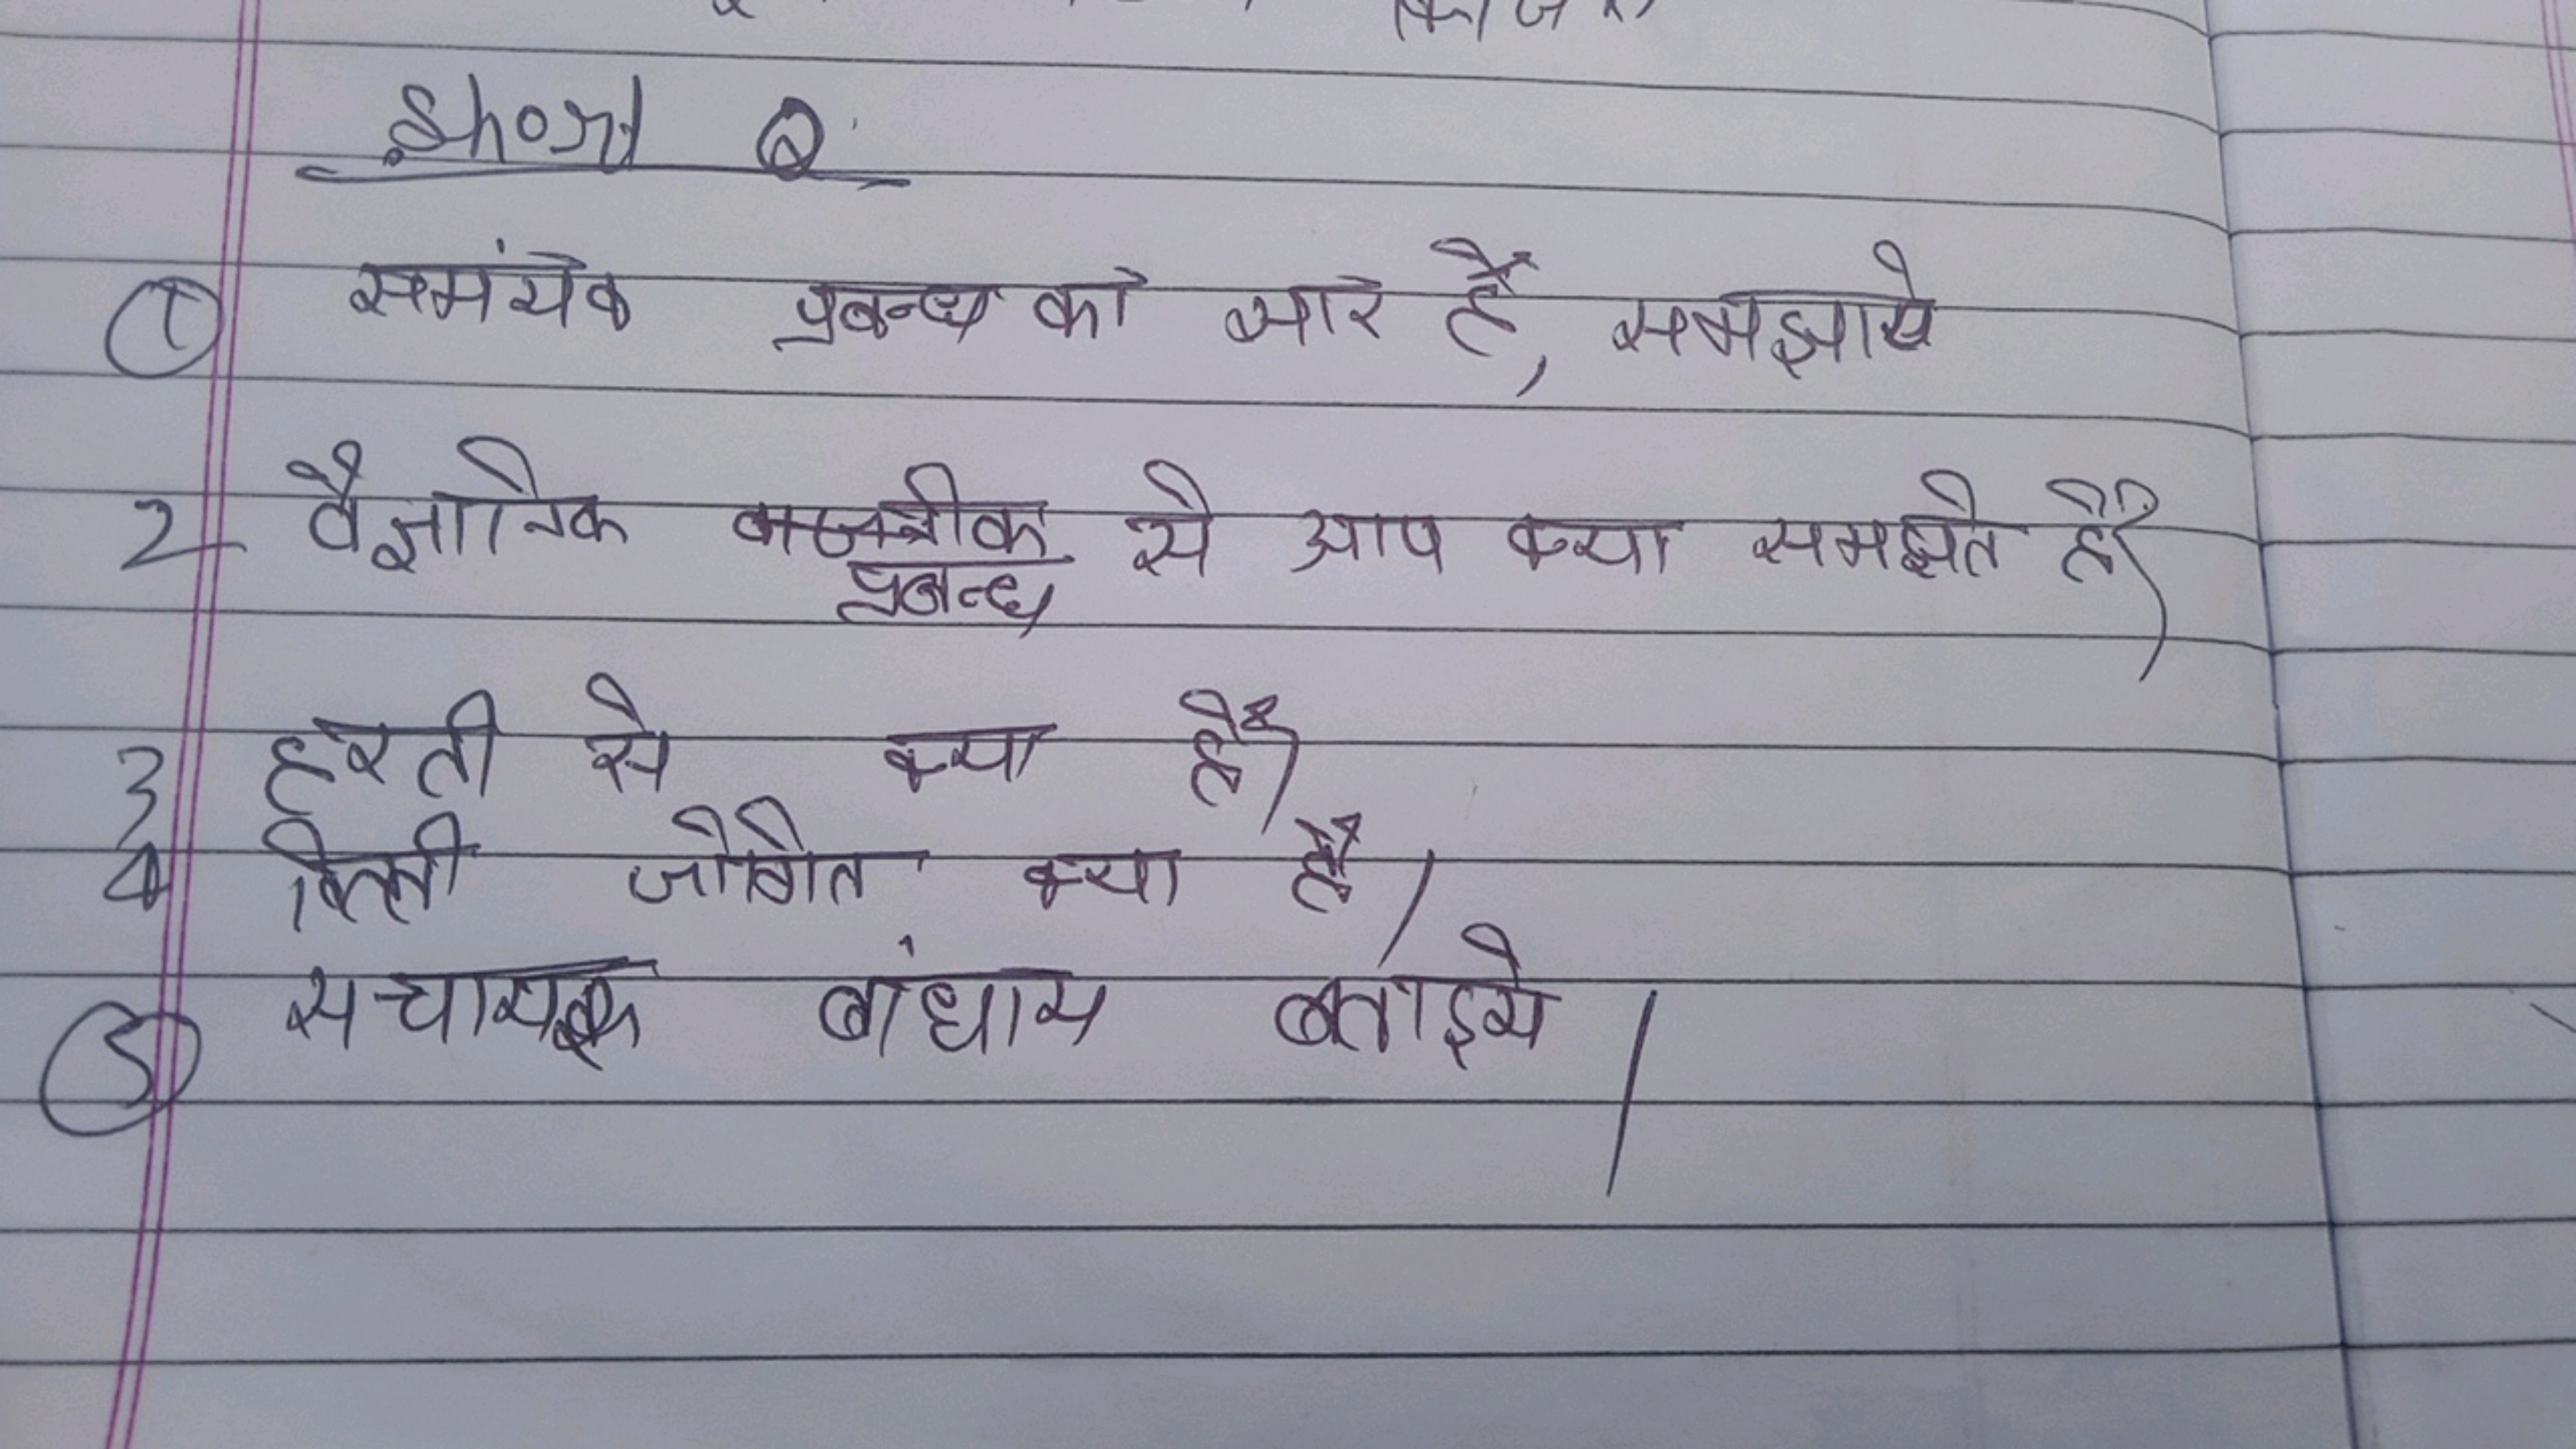 Short Q.
① समंयेक प्रबन्ध का सार हैं, समझाये
2 वैज्ञानिक प्रबन्ध से आप क्या समझते हैं?
3 हरती से क्या हैं?
4 जोगित क्या हैं।
⑤ बांधाय बताइये।